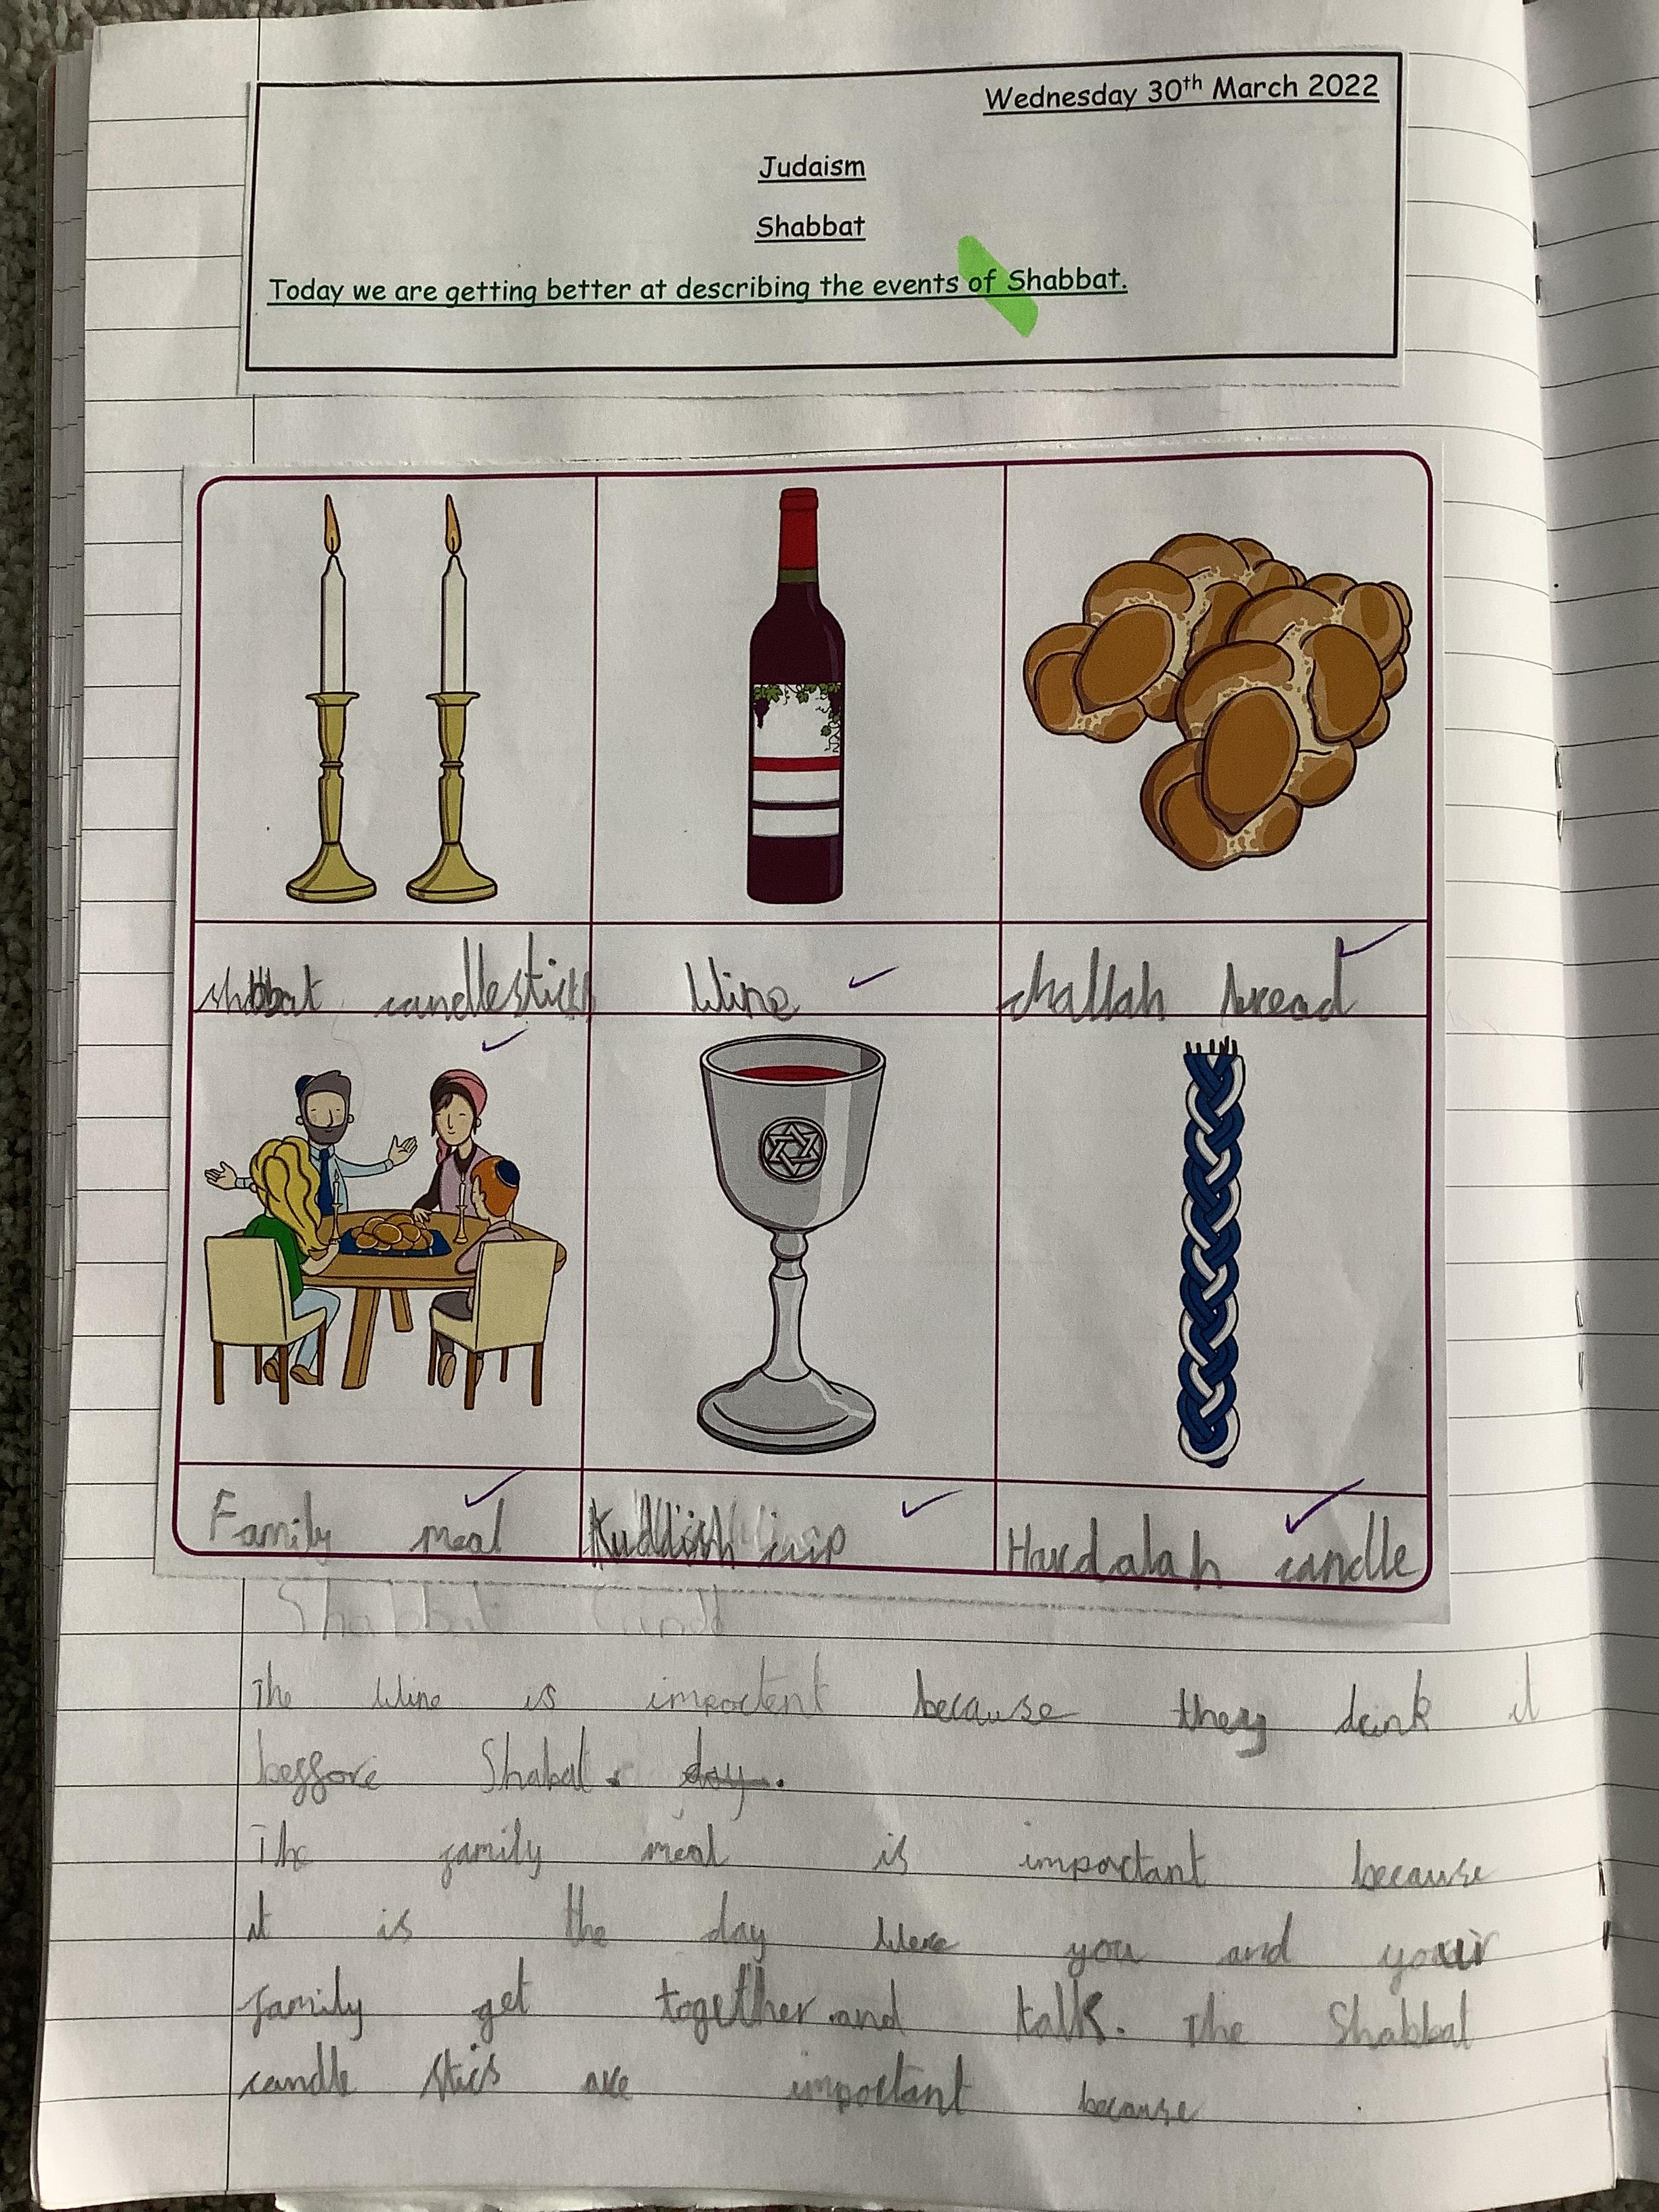 Wednesday 30th March 2022
Judaism
Shabbat
Today we are getting better at describing the events of Shabbat.
shabbat candlesticks
Wine
challah bread
Family meal
Kuddish cup
Hardalah candle
Shabbat
The Wine is importent because they drink it
beffore Shabat. day.
The family meal is important because
it is the day Were you and your
family get together and talk. The Shabbat
candle stics are important because